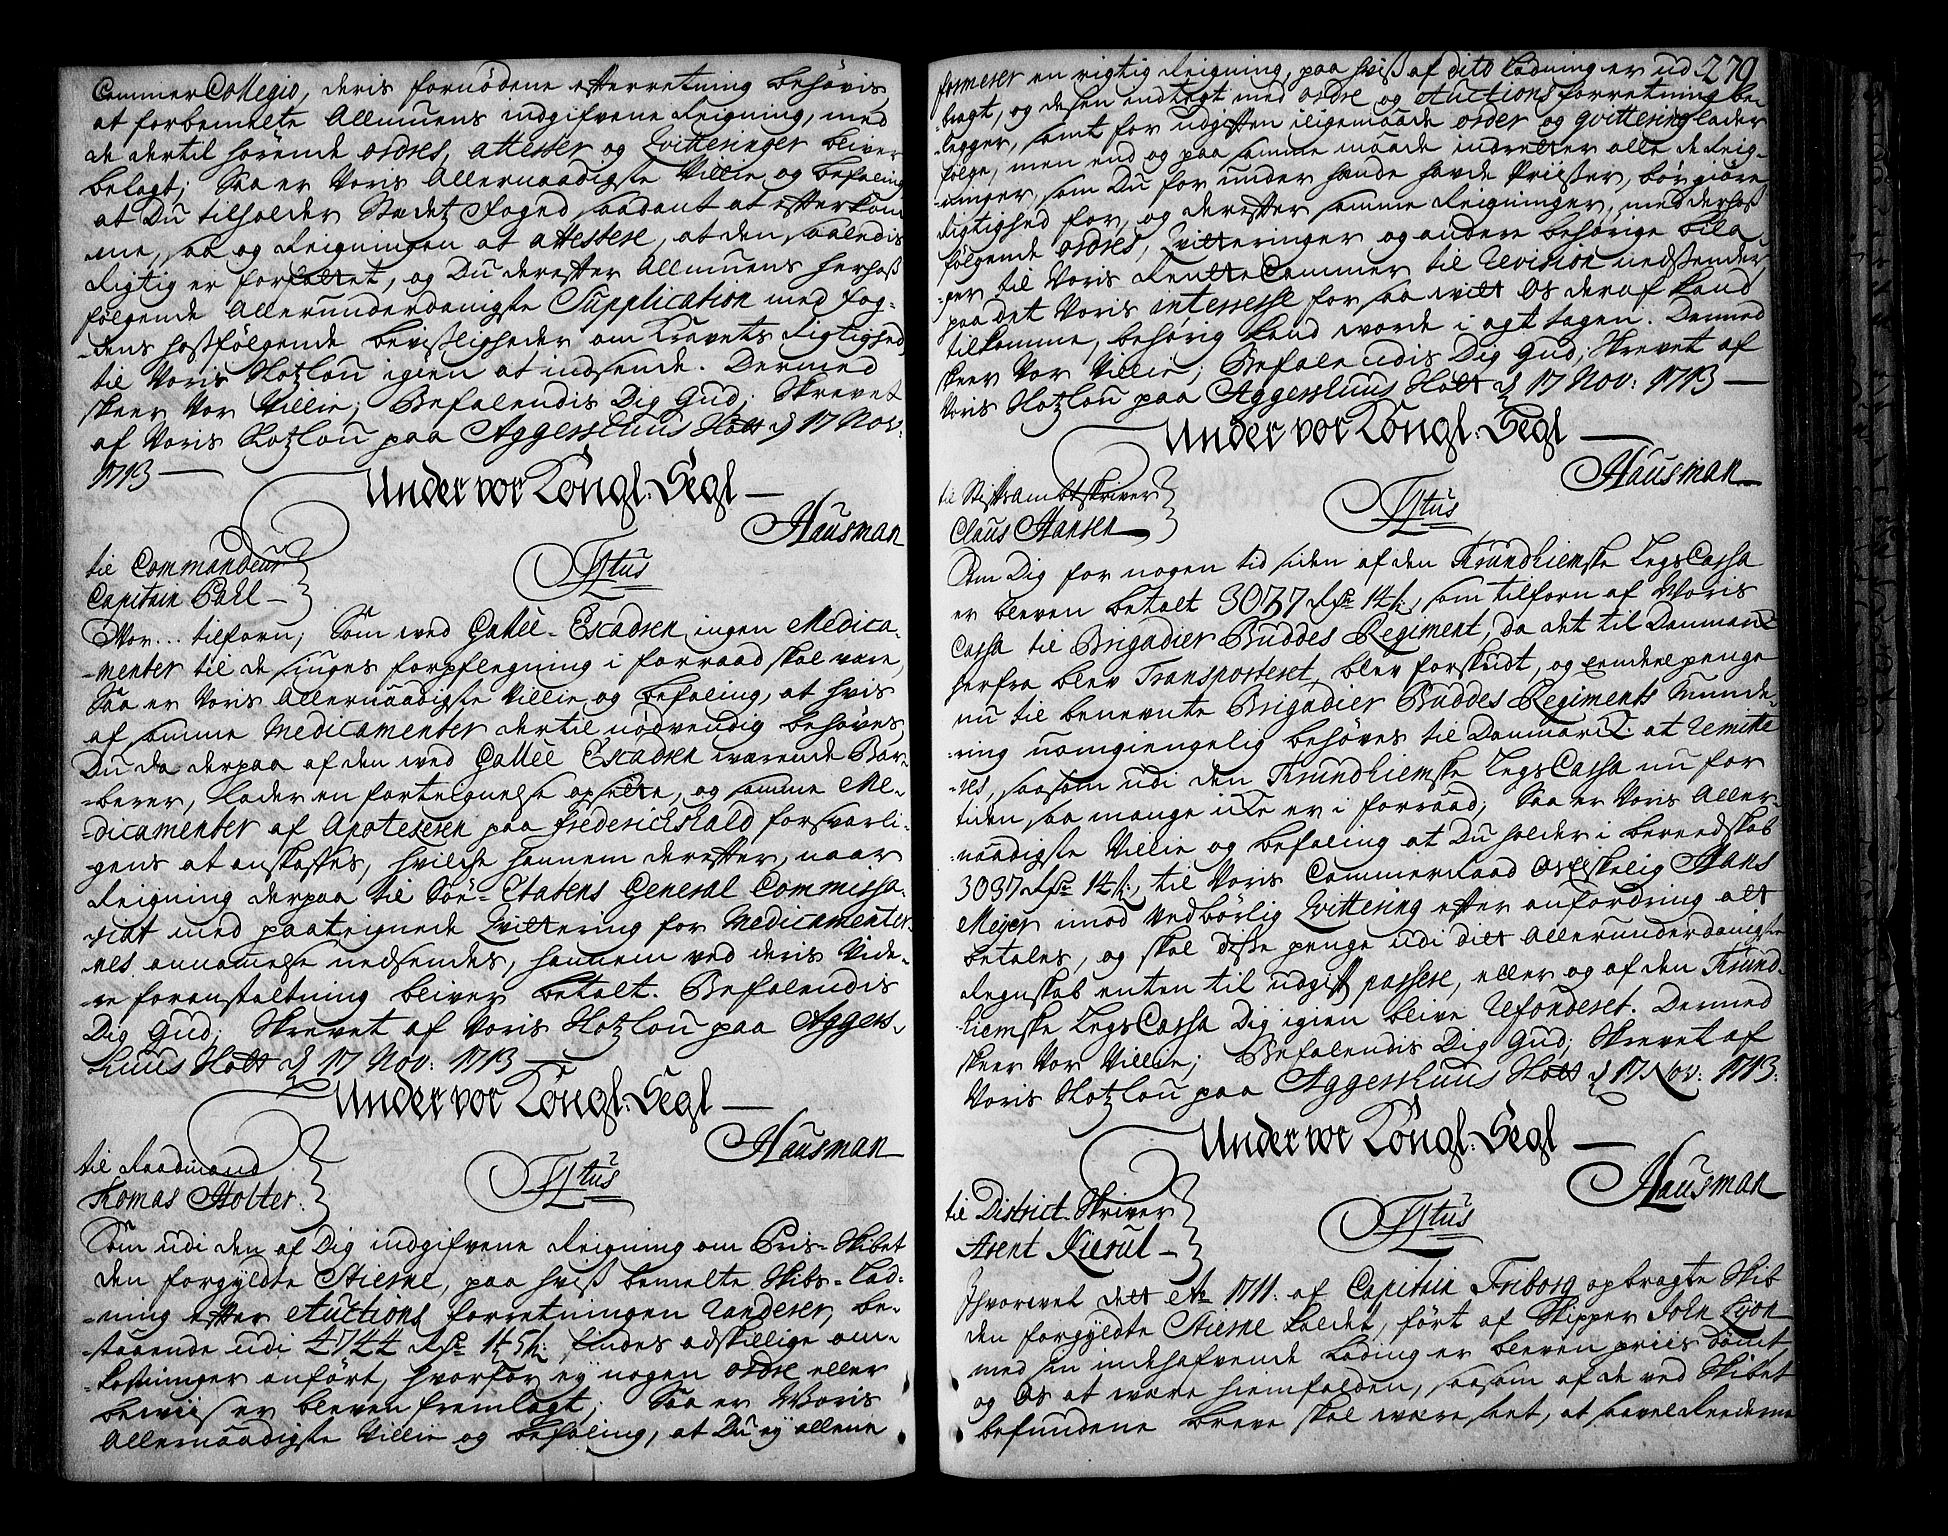 Cammer Collegio, deris fornødene efterretning behøvis
at forbemelte Allmuens indgifvene Reigning, med
de dertil hørende ordres, attester og Qvitteringer bliver
belagt; Saa er Voris Allernaadigste Villie og befaling
at Du tilholder Stædetz Foged saadant at efterkom-
me, saa og Reigningen at attestere, at den saaledis
Rigtig er forfattet, og Du derefter Allmuens herhoß
følgende Allerunderdanigste Supplication med Fog-
dens hosfølgende beviisligheder om Kravets Rigtighed
til Voris Slotzlou igien at indsende. Dermed
skeer Vor Villie; Befalendis Dig Gud; Skrevet
af Voris Slotzlou paa Aggershuus Slott d 17 Nov:
1713 —
Under vor Kongl: Segl —
Hausman
til Commandeur
Capitain Pall —
Titus
Vor... tilforn, Som ved Gallee-Escadren ingen Medica-
-menter til de siuges forpflegning i forraad skal være,
Saa er Voris Allernaadigste Villie og befaling, at hvis
af samme Medicamenter dertil nødvendig behøves,
Du da derpaa af den ved Gallee Escadren værende Bar-
-berer, lader en fortegnelse opsette, og samme Me-
-dicamenter af Apotekeren paa Frederichshald forsvarli-
gens at anskaffes, hvilche hannem derefter, naar
Reigning derpaa til Søe-Etatens General Commissa-
riat med paategnede Qvittering for Medicamenter-
nes annamelse nedsendes, hannem ved deris Vide-
re foranstaltning bliver betalt. Befalendis
Dig Gud; Skrevet af Voris Slotzlou paa Aggers-
huus Slott d 17 Nov: 1713 —
Under vor Kongl: Segl —
Hausman
til Raadmand
Thomas Stolter.
Titus
Som udi den af Dig indgifvene Reigning om Pris-Skibet
den forgyldte Stierne, paa hviß bemelte Skibs-Lad-
-ning efter Auctions forretningen Randerer, be-
staaende udi 4744 Rdr 1 ort 5 s, findes adskillige om-
-kostninger anført, hvorfor ey nogen ordre eller
beviiser er bleven fremlagt; Saa er Voris
Allernaadigste Villie og befaling, at Du ey allene
279
formerer en rigtig Reigning, paa hviß af dito ladning er ud-
-bragt, og desen indtegt med ordre og Auctions forretning be-
-legger, samt for udgiften iligemaade ordre og qvittering lader
følge, men end og paa samme maade indretter alle de Reig-
-ninger, som Du for under hænde havde Priisser, bør giøre
Rigtighed for, og derefter samme Reigninger, med derhoß
følgende ordres, Qvitteringer og andere behørige bila-
-ger til Voris Rentte Cammer til Revision nedsender,
paa det Voris interesse for saa vidt Os deraf kand
tilkomme, behørig kand vorde i agt tagen. Dermed
skeer Vor Villie; Befalendis Dig Gud; Skrevet af
Voris Slotzlou paa Aggershuus Slott d 17 Nov: 1713 —
Under vor Kongl: Segl —
Hausman
til Stiftsambtskriver
Claus Hansen
Titus
Som Dig for nogen tid siden af den Trundhiemske LegsCassa
er bleven betalt 3037 Rdr 14 s, som tilforn af Voris
Cassa til Brigadier Buddes Regiment, da det til Danmark
herfra blev Transporteret, blev forskudt, og samme penge
nu til benevnte Brigadier Buddes Regiments Munde-
-ring uomgiengelig behøves til Danmarck at remitte-
-res, saasom udi den Trundhiemske LegsCassa nu for
tiden saa mange icke er i forraad; Saa er Voris Aller-
-naadigste Villie og befaling at Du holder i bereedskab
3037 Rdr 14 s, til Voris CommerRaad Velskelig Hans
Meyer imod Vedbørlig Qvittering efter anfordring at
betales, og skal disse penge udi ditt Allerunderdanigste
Regnskab enten til udgift passere, eller og af den Trund-
-hiemske LegsCassa Dig igien blive Refonderet. Dermed
skeer Vor Villie; Befalendis Dig Gud; Skrevet af
Voris Slotzlou paa Aggershuus Slott d 17 Nov: 1713.
Under vor Kongl: Segl —
Hausman
til District-Skriver
Arent
Titus
Hvorvel dett Ao 1711. af Capitain Friborg opbragte Skib
den forgyldte Stierne kaldet, ført af Skipper John Lyon
med sin indehafvende Lading er bleven priis dømt,
og Os at være hiemfalden, saasom af de ved Skibet
befundene breve skal være seet, at saavel Reederne